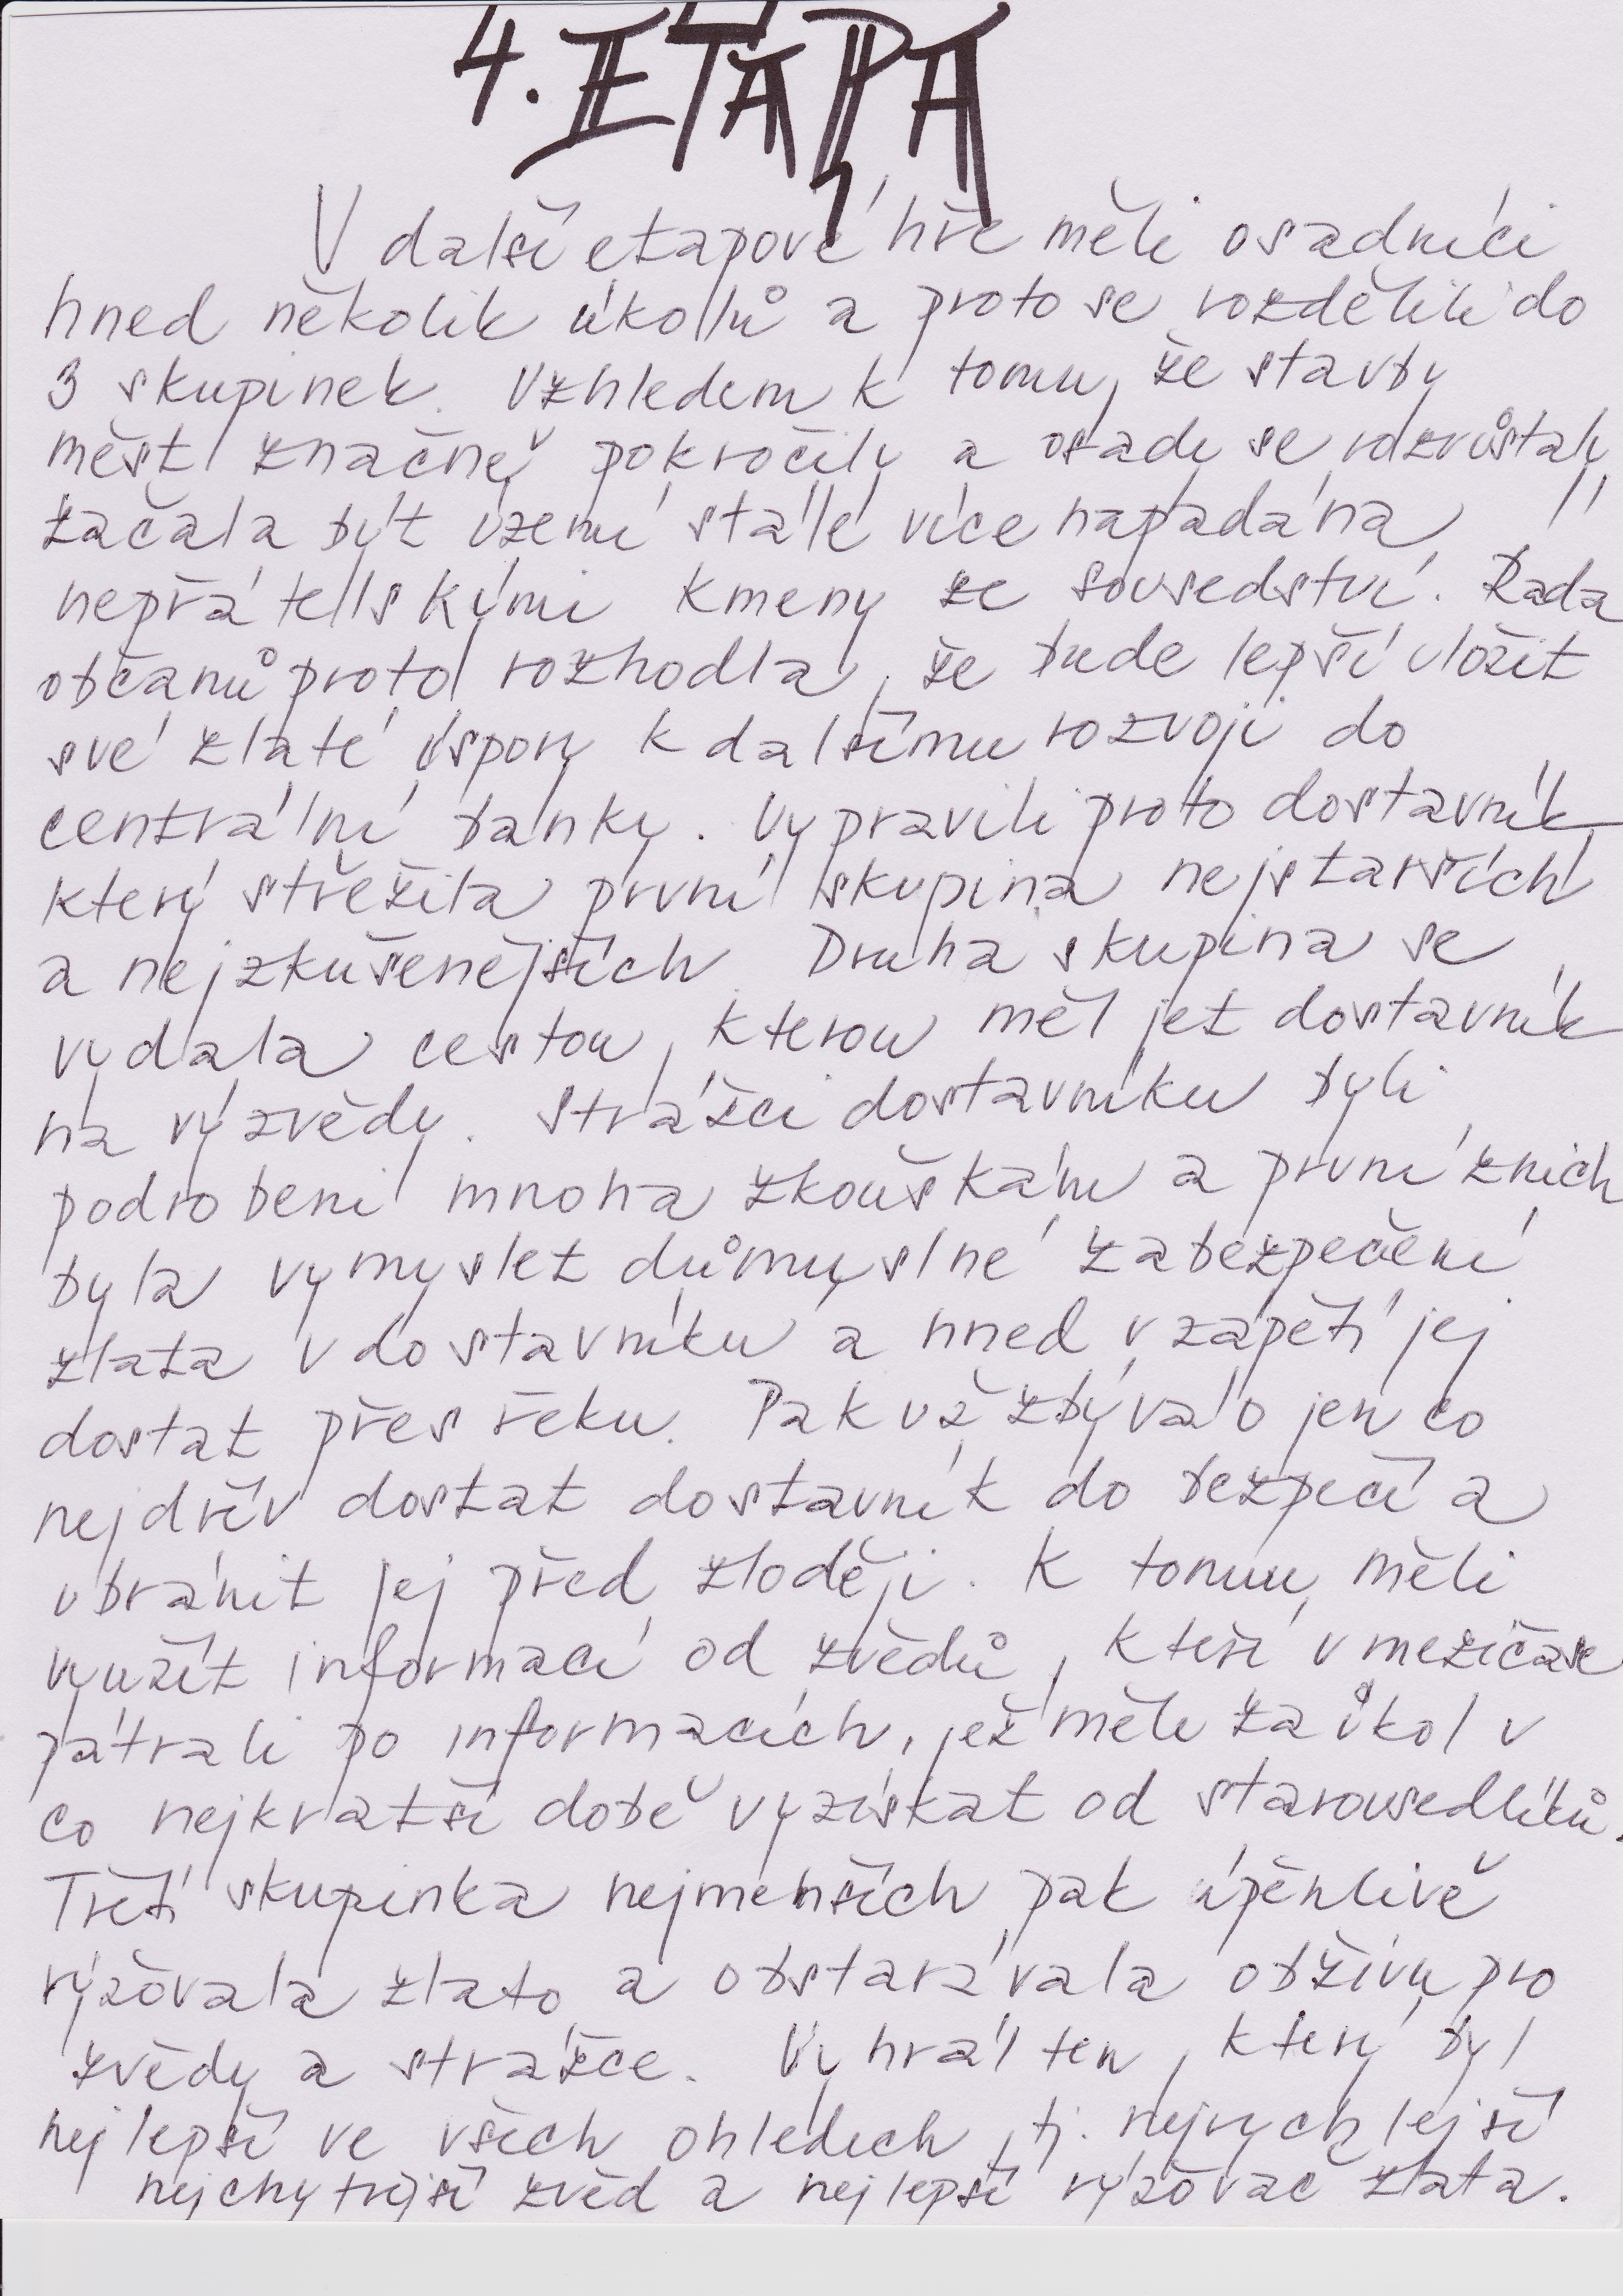 4. ETAPA
V další etapové hře měli osadníci
hned několik úkolů a proto se rozdělili do
3 skupinek. Vzhledem k tomu, že stavby
měst značně pokročily a osady se rozrůstaly
začala být území stále více napadána
nepřátelskými kmeny ze sousedství. Rada
občanů proto rozhodla, že bude lepší uložit
své zlaté úspory k dalšímu rozvoji do
centrální banky. Vypravili proto dostavník,
který střežila první skupina nejstarších
a nejzkušenějších. Druhá skupina se
vydala cestou, kterou měl jet dostavník
na výzvědy. Strážci dostavníku byli
podrobeni mnoha zkouškám a první z nich
byla vymyslet důmyslné zabezpečení
zlata v dostavníku a hned v zápětí jej
dostat přes řeku. Pak už zbývalo jen co
nejdřív dostat dostavník do bezpečí a
ubránit jej před zloději. K tomu měli
využít informací od zvědů, kteří v mezičase
pátrali po informacích, jež měli za úkol v
co nejkratší době vyzískat od starousedlíků.
Třetí skupinka nejmenších pak úpěnlivě
rýžovala zlato a obstarávala obživu pro
zvědy a strážce. Vyhrál ten, který byl
nejlepší ve všech ohledech, tj. nejrychlejší
nejchytřejší zvěd a nejlepší rýžovač zlata.